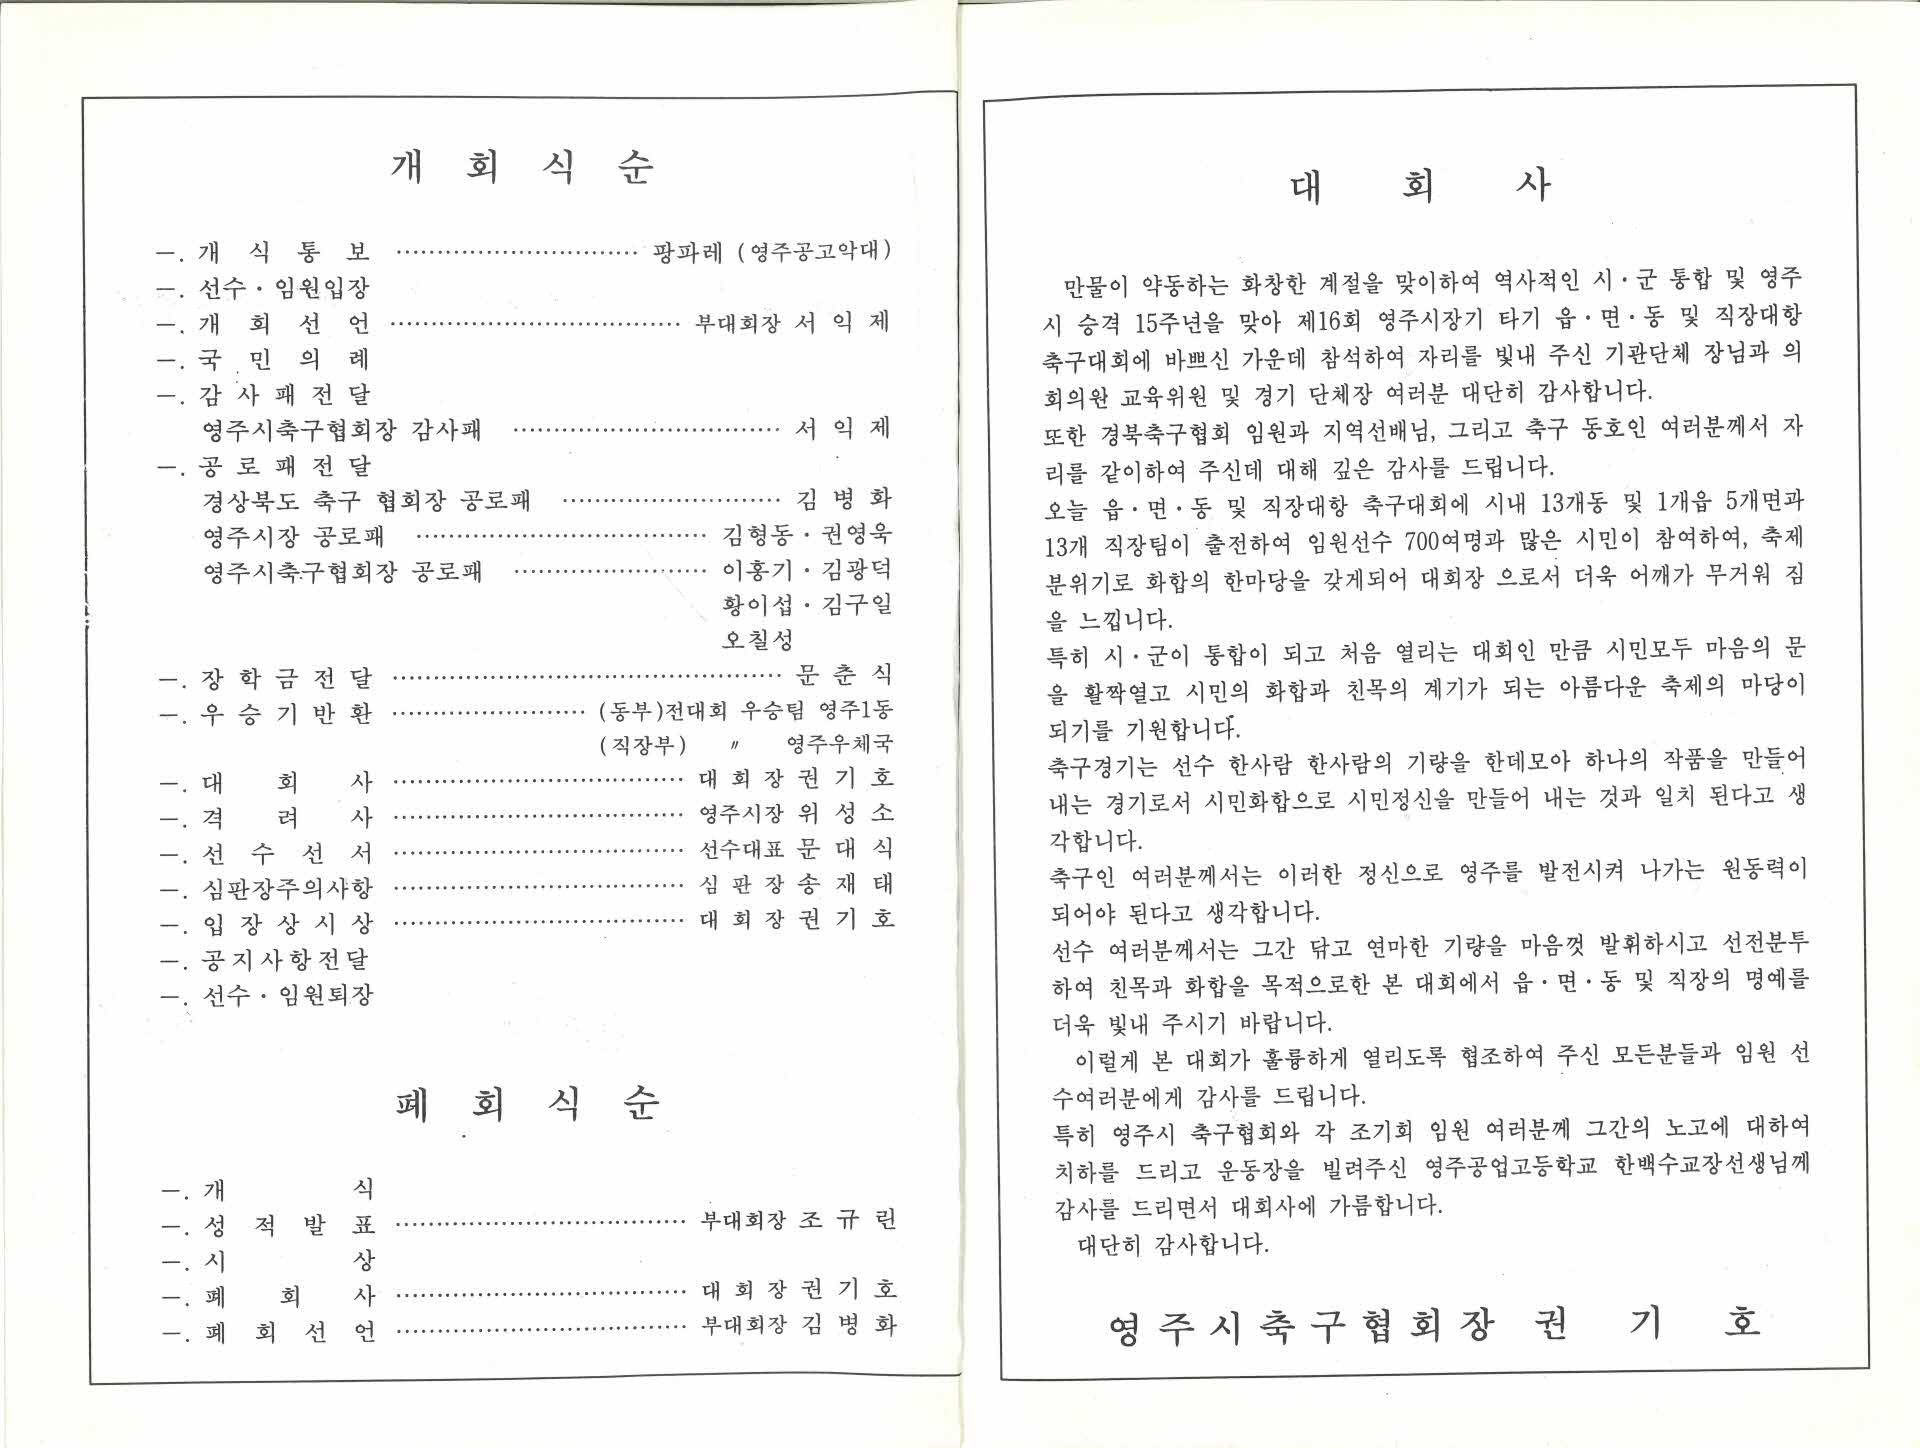 개 회 식 순
一. 개 식 통 보 ······························ 팡파레 (영주공고악대)
一. 선수·임원입장
一. 개 회 선 언 ···································· 부대회장 서 익 제
一. 국 민 의 례
一. 감 사 패 전 달
영주시축구협회장 감사패 ································· 서 익 제
一. 공 로 패 전 달
경상북도 축구 협회장 공로패 ··························· 김 병 화
영주시장 공로패 ···································· 김형동·권영욱
영주시축구협회장 공로패 ························ 이홍기·김광덕
황이섭·김구일
오칠성
一. 장 학 금 전 달 ················································ 문 춘 식
一. 우 승 기 반 환 ························ (동부)전대회 우승팀 영주1동
(직장부) 〃 영주우체국
一. 대 회 사 ···································· 대 회 장 권 기 호
一. 격 려 사 ···································· 영주시장 위 성 소
一. 선 수 선 서 ···································· 선수대표 문 대 식
一. 심판장주의사항 ···································· 심 판 장 송 재 태
一. 입 장 상 시 상 ···································· 대 회 장 권 기 호
一. 공지사항전달
一. 선수·임원퇴장
폐 회 식 순
一. 개 식
一. 성 적 발 표 ···································· 부대회장 조 규 린
一. 시 상
一. 폐 회 사 ···································· 대 회 장 권 기 호
一. 폐 회 선 언 ···································· 부대회장 김 병 화
대 회 사
만물이 약동하는 화창한 계절을 맞이하여 역사적인 시·군 통합 및 영주
시 승격 15주년을 맞아 제16회 영주시장기 타기 읍·면·동 및 직장대항
축구대회에 바쁘신 가운데 참석하여 자리를 빛내 주신 기관단체 장님과 의
회의원 교육위원 및 경기 단체장 여러분 대단히 감사합니다.
또한 경북축구협회 임원과 지역선배님, 그리고 축구 동호인 여러분께서 자
리를 같이하여 주신데 대해 깊은 감사를 드립니다.
오늘 읍·면·동 및 직장대항 축구대회에 시내 13개동 및 1개읍 5개면과
13개 직장팀이 출전하여 임원선수 700여명과 많은 시민이 참여하여, 축제
분위기로 화합의 한마당을 갖게되어 대회장 으로서 더욱 어깨가 무거워 짐
을 느낍니다.
특히 시·군이 통합이 되고 처음 열리는 대회인 만큼 시민모두 마음의 문
을 활짝열고 시민의 화합과 친목의 계기가 되는 아름다운 축제의 마당이
되기를 기원합니다.
축구경기는 선수 한사람 한사람의 기량을 한데모아 하나의 작품을 만들어
내는 경기로서 시민화합으로 시민정신을 만들어 내는 것과 일치 된다고 생
각합니다.
축구인 여러분께서는 이러한 정신으로 영주를 발전시켜 나가는 원동력이
되어야 된다고 생각합니다.
선수 여러분께서는 그간 닦고 연마한 기량을 마음껏 발휘하시고 선전분투
하여 친목과 화합을 목적으로한 본 대회에서 읍·면·동 및 직장의 명예를
더욱 빛내 주시기 바랍니다.
이렇게 본 대회가 훌륭하게 열리도록 협조하여 주신 모든분들과 임원 선
수여러분에게 감사를 드립니다.
특히 영주시 축구협회와 각 조기회 임원 여러분께 그간의 노고에 대하여
치하를 드리고 운동장을 빌려주신 영주공업고등학교 한백수교장선생님께
감사를 드리면서 대회사에 가름합니다.
대단히 감사합니다.
영주시축구협회장 권 기 호